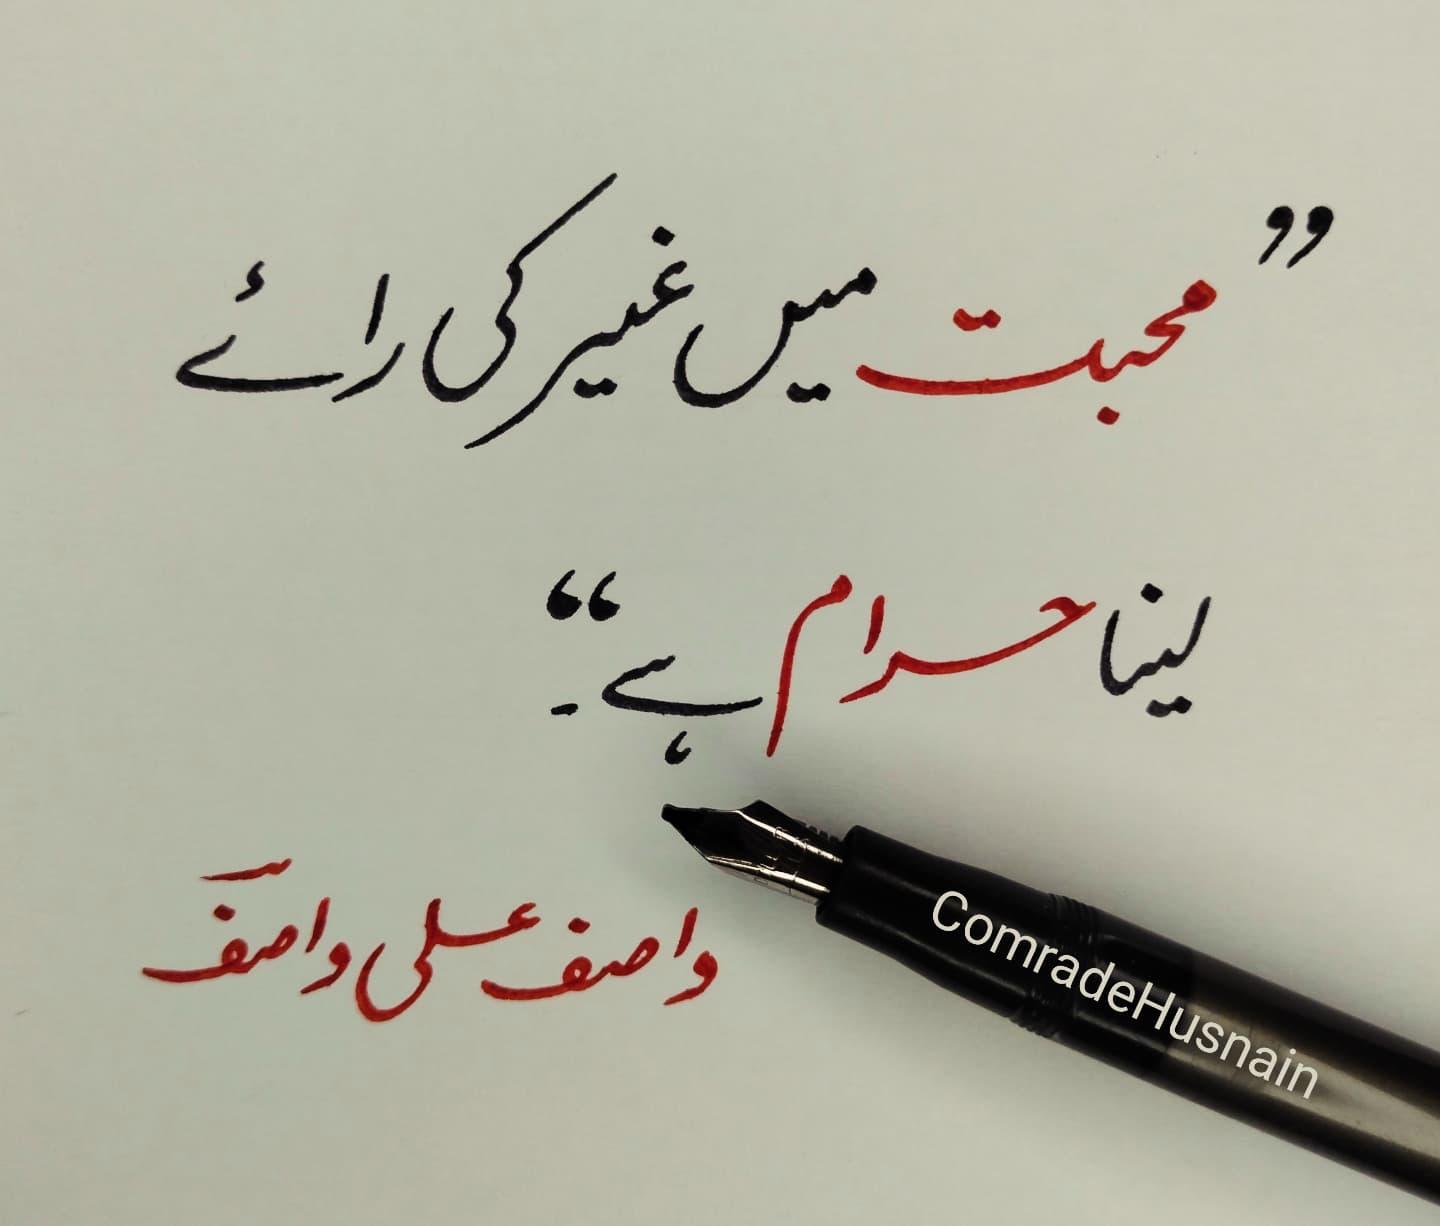 ”محبت میں غیر کی رائے
لینا حرام ہے۔“
واصف علی واصفؔ
ComradeHusnain